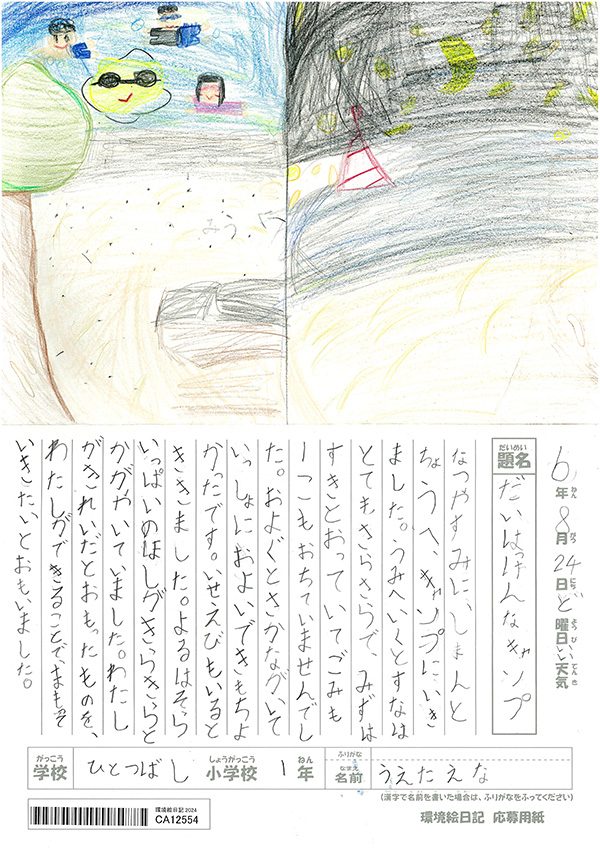 6年8月24日ど曜日いい天気
ねん がつ にち ようび てんき
だいめい
題名 だいはっけんなキャンプ
なつやすみに、しまんと
ちょうへ、キャンプにいき
ました。うみへいくとすなは
とても、さらさらで、みずは
すきとおっていてごみも
一こもおちていませんでし
た。およぐとさかながいて
いっしょにおよいできもちよ
かったです。いせえびもいると
ききました。よるはそら
いっぱいのほしがきらきらと
かがやいていました。わたし
がきれいだとおもったものを、
わたしができることで、まもって
いきたいとおもいました。
がっこう しょうがっこう ねん ふりがな
学校 ひとつばし 小学校 1年
なまえ
名前 うえたえな
(漢字で名前を書いた場合は、ふりがなをふってください)
環境絵日記 2024
CA12554
環境絵日記 応募用紙